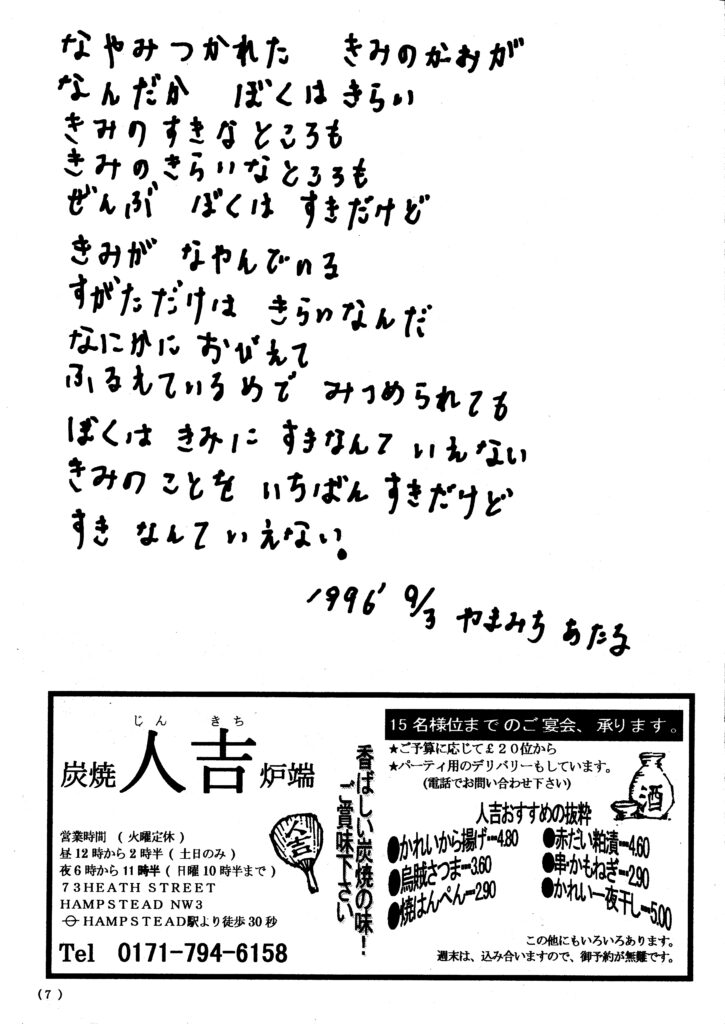 なやみつかれた　きみのかおが
なんだか　ぼくはきらい
きみのすきなところも
きみのきらいなところも
ぜんぶ　ぼくは　すきだけど
きみが　なやんでいる
すがただけは　きらいなんだ
なにかに　おびえて
ふるえているめで　みつめられても
ぼくは　きみに　すきなんて　いえない
きみの　ことを　いちばん　すきだけど
すき　なんて　いえない。
1996' 9/3 やまみち　あたる
じん　きち
炭焼 人吉 炉端
営業時間　( 火曜定休 )
昼 12時から2時半 ( 土日のみ )
夜 6時から 11時半 ( 日曜 10時半まで )
73HEATH STREET
HAMPSTEAD NW3
HAMPSTEAD駅より徒歩 30 秒
Tel 0171-794-6158
人吉
香ばしい炭焼の味！
ご賞味下さい
15名様位までのご宴会、承ります。
★ご予算に応じて£20位から
★パーティ用のデリバリーもしています。
(電話でお問い合わせ下さい)
酒
人吉おすすめの抜粋
●かれいから揚げー4.80
●烏賊さつまー3.60
●焼はんぺんー2.90
●赤だい粕漬ー4.60
●串・かもねぎー2.90
●かれい一夜干しー5.00
この他にもいろいろあります。
週末は、込み合いますので、御予約が無難です。
(7)